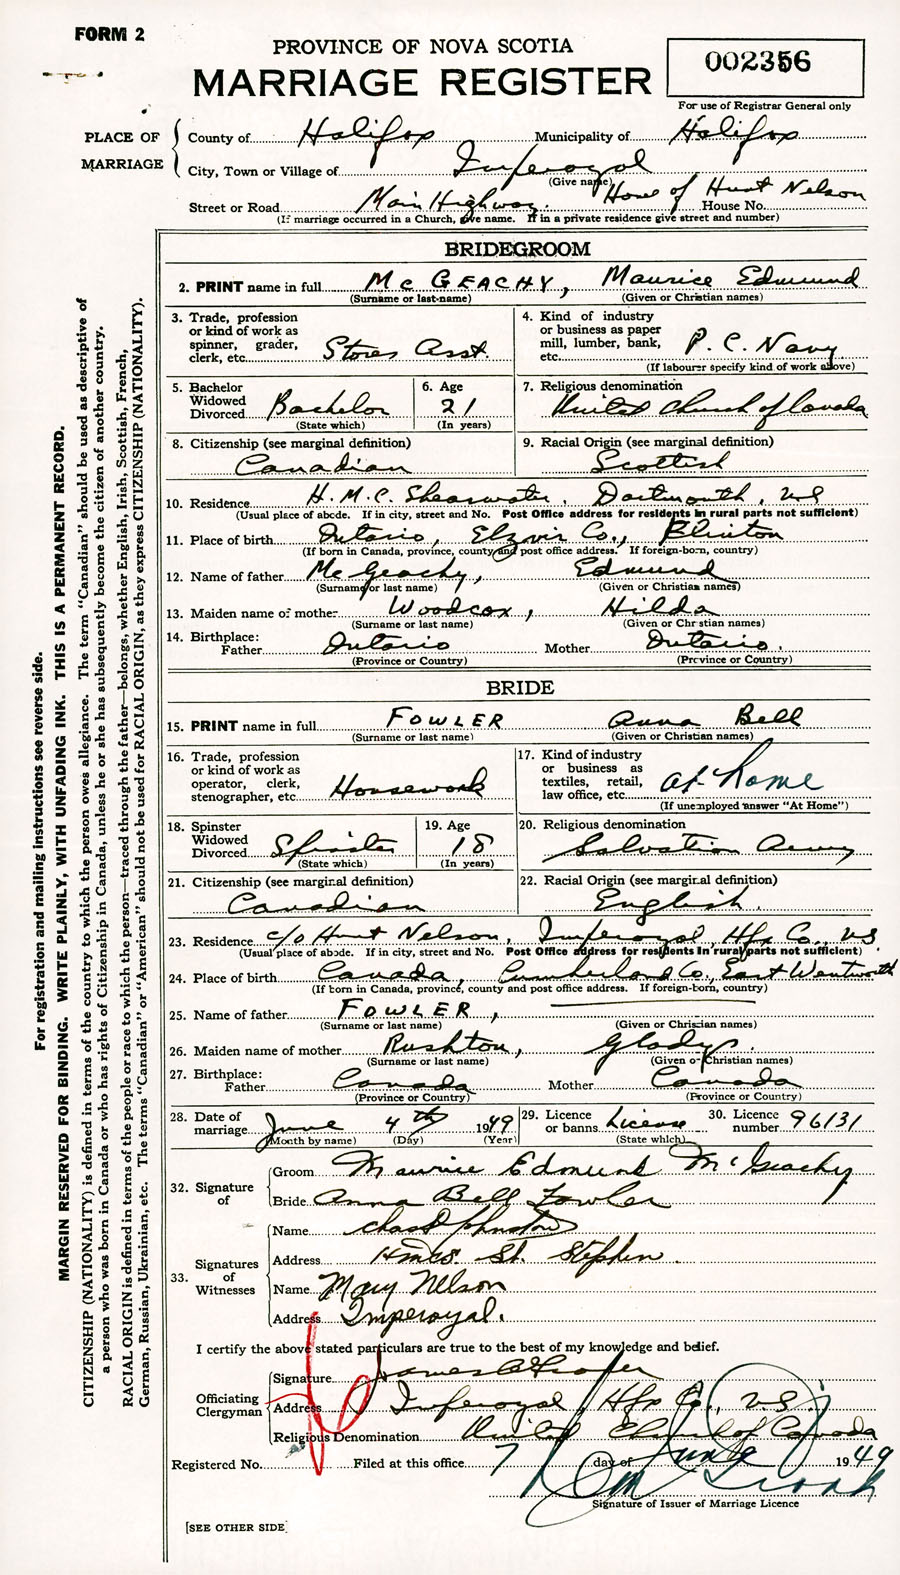 FORM 2
PROVINCE OF NOVA SCOTIA
MARRIAGE REGISTER
002356
For use of Registrar General only
PLACE OF MARRIAGE
County of Halifax Municipality of Halifax
City, Town or Village of Imperoyal
(Give name)
Home of Hunt Nelson
Street or Road Main Highway. House No.
(If marriage occurred in a Church, give name. If in a private residence give street and number)
BRIDEGROOM
2. PRINT name in full McGEACHY, Maurice Edmund
(Surname or last name) (Given or Christian names)
3. Trade, profession or kind of work as spinner, grader, clerk, etc. Stores Asst.
4. Kind of industry or business as paper mill, lumber, bank, etc. P. C. Navy
(If labourer specify kind of work above)
5. Bachelor Widowed Divorced Bachelor
(State which)
6. Age 21
(In years)
7. Religious denomination United Church of Canada
8. Citizenship (see marginal definition) Canadian
9. Racial Origin (see marginal definition) Scottish
10. Residence H.M.C. Shearwater, Dartmouth, NS
(Usual place of abode. If in city, street and No. Post Office address for residents in rural parts not sufficient)
11. Place of birth Ontario, Co.,
(If born in Canada, province, county and post office address. If foreign-born, country)
12. Name of father McGeachy, Edmund
(Surname or last name) (Given or Christian names)
13. Maiden name of mother Woodcox, Hilda
(Surname or last name) (Given or Christian names)
14. Birthplace: Father Ontario Mother Ontario.
(Province or Country) (Province or Country)
BRIDE
15. PRINT name in full FOWLER Anna Bell
(Surname or last name) (Given or Christian names)
16. Trade, profession or kind of work as operator, clerk, stenographer, etc. Housework
17. Kind of industry or business as textiles, retail, law office, etc. at Home
(If unemployed answer "At Home")
18. Spinster Widowed Divorced Spinster
(State which)
19. Age 18
(In years)
20. Religious denomination Salvation Army
21. Citizenship (see marginal definition) Canadian
22. Racial Origin (see marginal definition) English.
23. Residence c/o Hunt Nelson, Imperoyal, Hfx Co., NS.
(Usual place of abode. If in city, street and No. Post Office address for residents in rural parts not sufficient)
24. Place of birth Canada, Cumberland Co, East Wentworth
(If born in Canada, province, county and post office address. If foreign-born, country)
25. Name of father FOWLER,
(Surname or last name) (Given or Christian names)
26. Maiden name of mother Rushton, Gladys.
(Surname or last name) (Given or Christian names)
27. Birthplace: Father Canada Mother Canada
(Province or Country) (Province or Country)
28. Date of marriage June 4th 1949
(Month by name) (Day) (Year)
29. Licence or banns License
(State which)
30. Licence number 96131
32. Signature of
Groom Maurice Edmund McGeachy
Bride Anna Bell Fowler
33. Signatures of Witnesses
Name Chas Johnston
Address HMCS St. Stephen.
Name Mary Nelson
Address Imperoyal.
I certify the above stated particulars are true to the best of my knowledge and belief.
Officiating Clergyman
Signature James
Address Imperoyal, Hfx Co., NS.
Religious Denomination United Church of Canada
Registered No. Filed at this office 7 day of June 1949
Signature of Issuer of Marriage Licence
[SEE OTHER SIDE]
For registration and mailing instructions see reverse side.
MARGIN RESERVED FOR BINDING. WRITE PLAINLY, WITH UNFADING INK. THIS IS A PERMANENT RECORD.
CITIZENSHIP (NATIONALITY) is defined in terms of the country to which the person owes allegiance. The term "Canadian" should be used as descriptive of
a person who was born in Canada or who has rights of Citizenship in Canada, unless he or she has subsequently become the citizen of another country.
RACIAL ORIGIN is defined in terms of the people or race to which the person—traced through the father—belongs, whether English, Irish, Scottish, French,
German, Russian, Ukrainian, etc. The terms "Canadian" or "American" should not be used for RACIAL ORIGIN, as they express CITIZENSHIP (NATIONALITY).